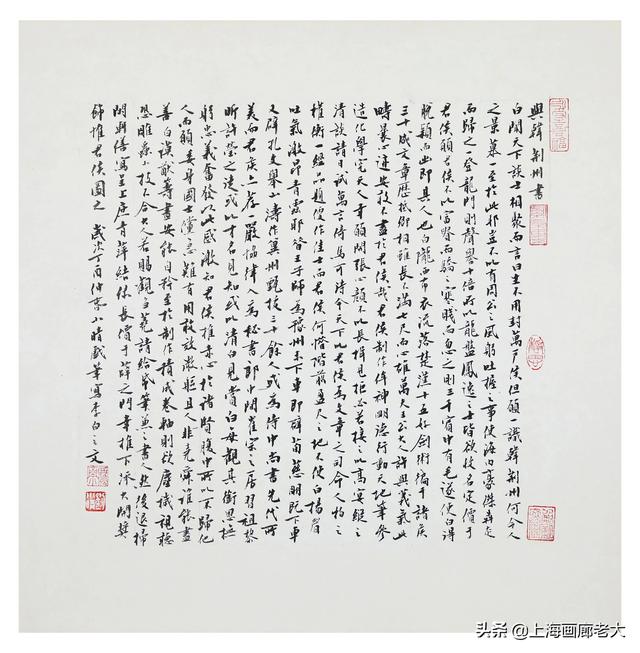 與韓荊州書
白聞天下談士相聚而言曰生不用封萬戶侯但願一識韓荊州何令人
之景慕一至於此耶豈不以有周公之風躬吐握之事使海內豪傑奔走
而歸之一登龍門則聲譽十倍所以龍盤鳳逸之士皆欲收名定價于
君侯願君侯不以富貴而驕之寒賤而忽之則三千賓中有毛遂使白得
脫穎而出即其人也白隴西布衣流落楚漢十五好劍術徧干諸侯
三十成文章歷抵卿相雖長不滿七尺而心雄萬夫王公大人許與義氣此
疇曩心迹安敢不盡於君侯哉君侯制作侔神明德行動天地筆參
造化學究天人幸願開張心顏不以長揖見拒必若接之以高宴縱之
清談請日試萬言倚馬可待今天下以君侯為文章之司命人物之
權衡一經品題便作佳士而君侯何惜階前盈尺之地不使白揚眉
吐氣激昂青雲耶昔王子師為豫州未下車即辟荀慈明既下車
又辟孔文舉山濤作冀州甄拔三十餘人或為侍中尚書先代所
美而君侯亦薦一嚴協律入為秘書郎中間崔宗之房習祖黎
昕許瑩之徒或以才名見知或以清白見賞白每觀其銜恩撫
躬忠義奮發以此感激知君侯推赤心於諸賢腹中所以不歸他
人而願委身國士儻急難有用敢效微軀且人非堯舜誰能盡
善白謨猷籌畫安能自矜至於制作積成卷軸則欲塵穢視聽
恐雕蟲小技不合大人若賜觀芻蕘請給紙筆兼之書人然後退掃
閑軒繕寫呈上庶青萍結綠長價于薛卞之門幸推下流大開獎
飾惟君侯圖之 歲次丁酉仲春小晴戲筆寫李白之文
头条 @上海画廊老大